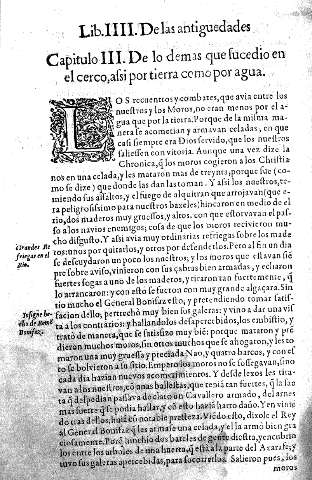 Lib. IIII. De las antiguedades
Capitulo III. De lo demas que sucedio en
el cerco, assi por tierra como por agua.
LOS recuentos y combates, que avia entre los
nuestros y los Moros, no eran menos por el a-
gua que por la tierra. Porque de la misma ma
nera se acometian y armavan celadas, en que
casi siempre era Dios servido, que los nuestros
saliessen con vitoria. Aunque una vez dize la
Chronica, q̃ los moros cogieron a los Christia
nos en una celada, y les mataron mas de treynta: porque fue (co-
mo se dize) que donde las dan las toman. Y assi los nuestros, te-
miendo sus assaltos, y el fuego de alquitran que arrojavan (que e-
ra peligrosissimo para nuestros baxeles) hincaron en medio del
rio, dos maderos muy gruessos, y altos, con que estorvavan el pas-
so a los navios enemigos; cosa de que los moros recivieron mu-
cho disgusto. Y assi avia muy ordinarias refriegas sobre los made-
ros: unos por quitarlos, y otros por defenderlos. Pero al fin un dia
se descuydaron un poco los nuestros; y los moros que estavan siẽ
pre sobre aviso, vinieron con sus çabras bien armadas, y echaron
fuertes sogas a uno de los maderos, y tiraron tan fuertemente, q̃
lo arrancaron: y con esto se fueron con muy grande algaçara. Sin
tio mucho el General Bonifaz esto, y pretendiendo tomar satis-
facion dello, pertrechò muy bien sus galeras: y vino a dar una vis
ta a los contrarios: y hallandolos desapercebidos, los embistio, y
tratò de manera, que se satisfizo muy biẽ: porque mataron y prẽ
dieron muchos moros, sin otros muchos que se ahogaron, y les to
maron una muy gruessa y preciada Nao, y quatro barcos, y con es
to se bolvieron a su sitio. Empero los moros no se sossegavan, sino
cada dia hazian nuevos acometimientos. Y desde lexos les tira-
van a los nuestros, cõ unas ballestas, que teniã tan fuertes, q̃ la sae
ta q̃ despedian passava de claro un Cavallero armado, del arnes
mas fuerte q̃ se podia hallar, y cõ esto haziã harto daño. Yen vinie
do tras dellos, huiã cõ notable presteza. Viẽdo esto, dixole el Rey
al General Bonifaz q̃ les armasse una celada, y el la armò bien gra
ciosamente. Porq̃ hinchio dos barcos de gente diestra, y encubrio
los entre los arboles de una huerta, q̃ està a la parte del Axarafe; y
tuvo sus galeras apercebidas, para socorrerlos. Salieron pues, los
moros
Grandes Re
friegas en el
Rio.
Insigne he-
cho de Ramõ
Bonifaz.